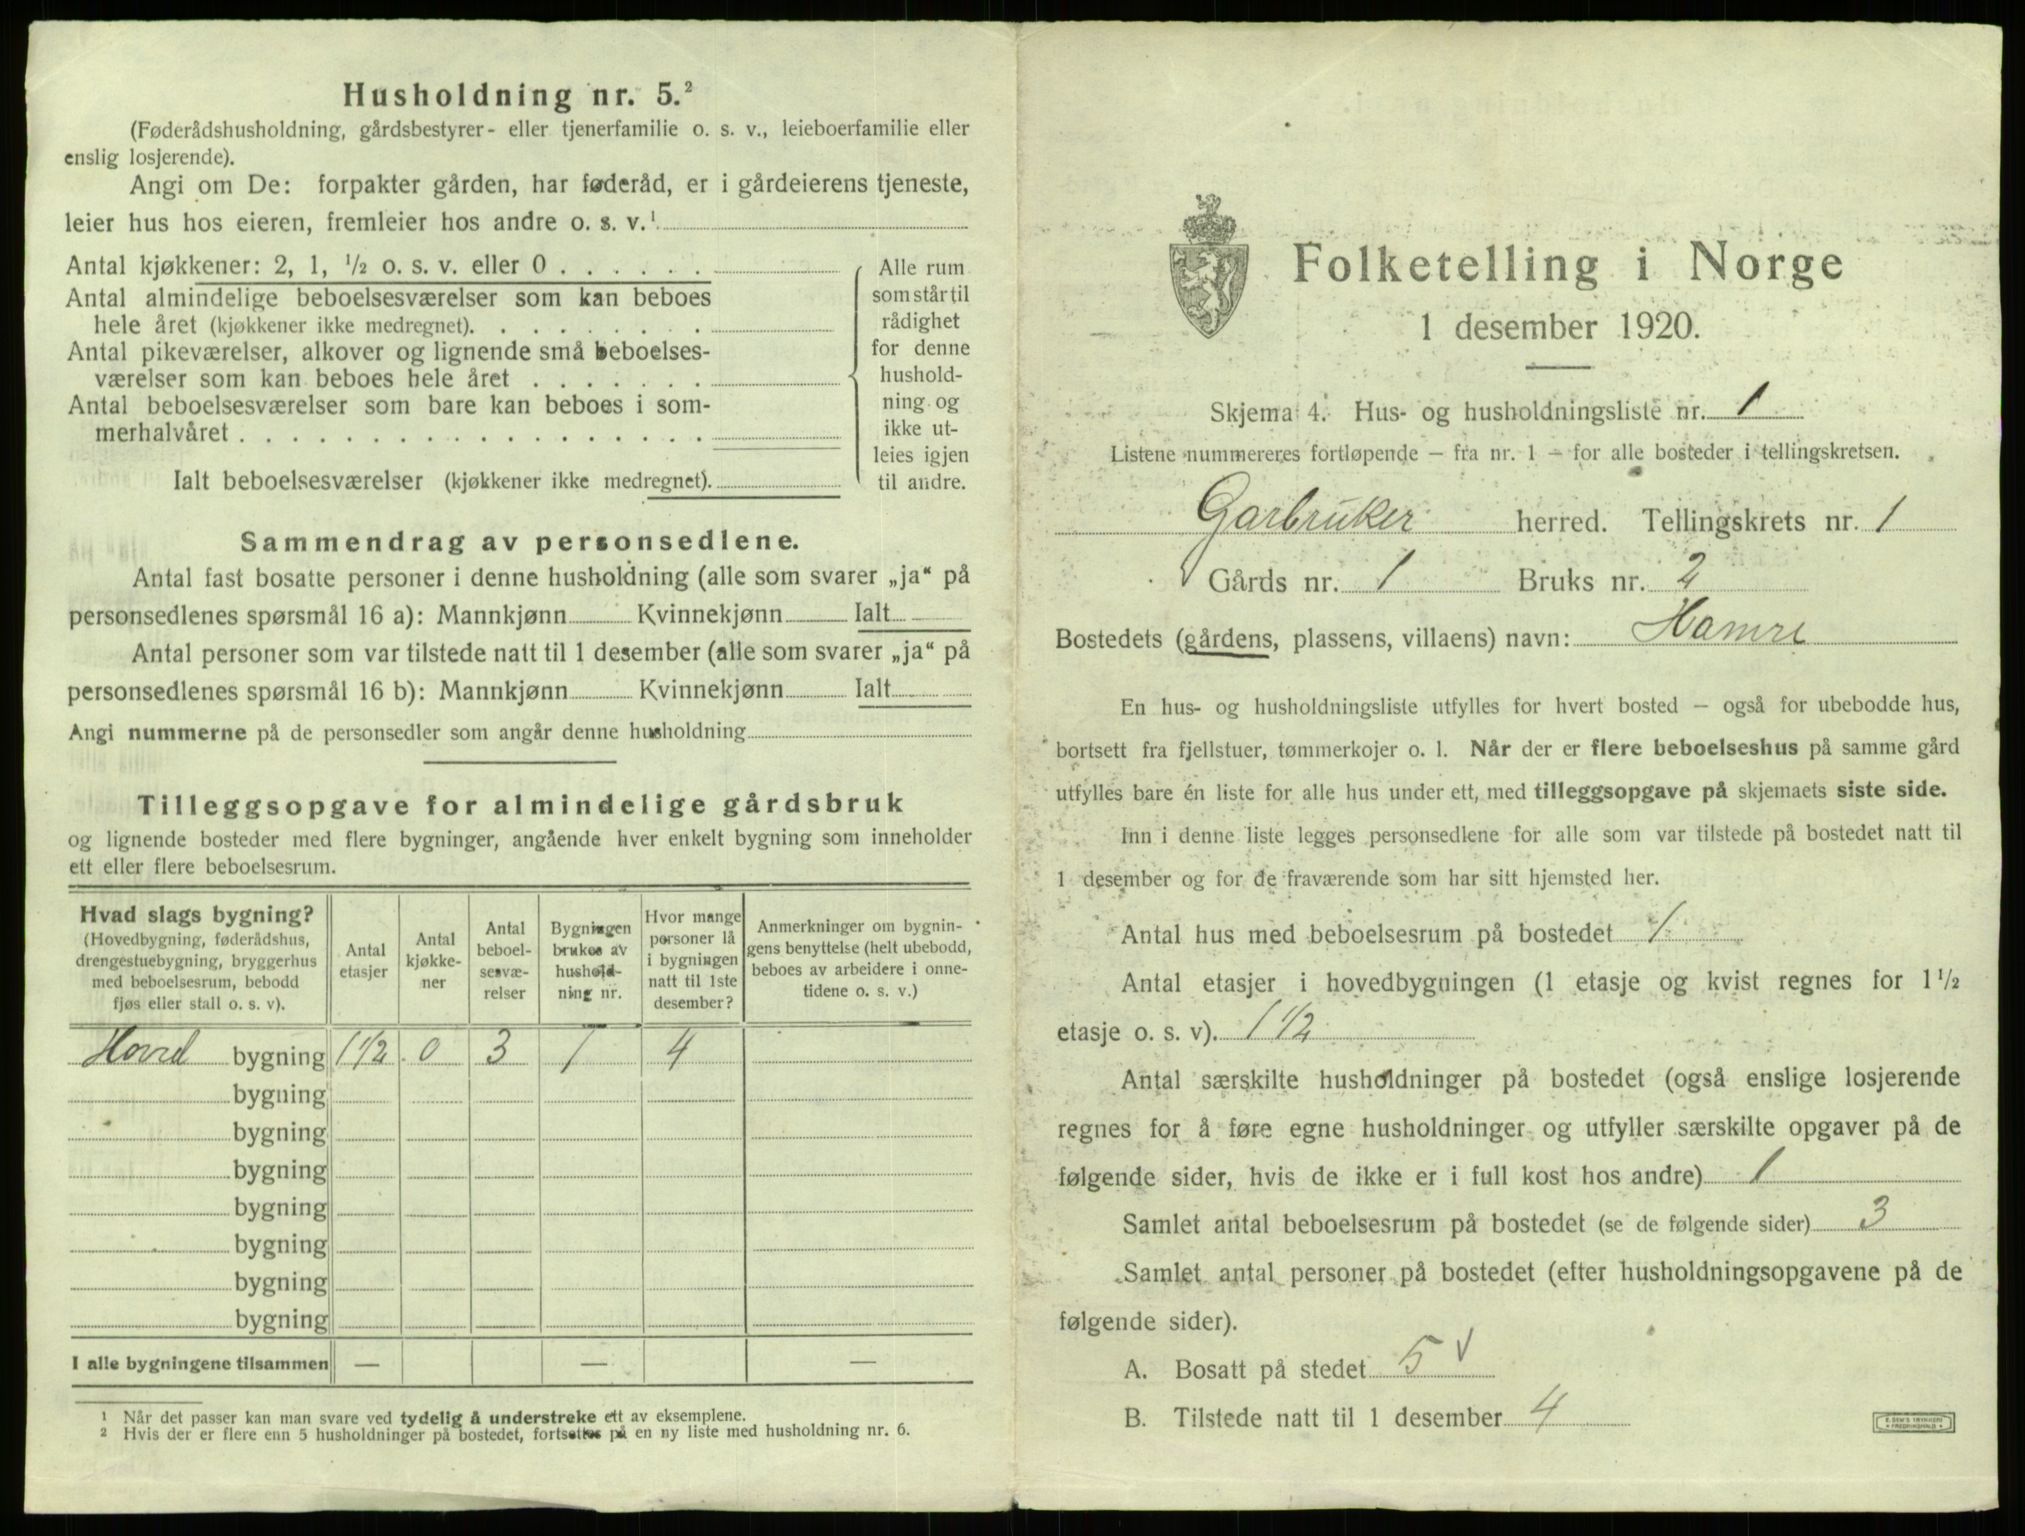 Husholdning nr. 5.²
(Føderådshusholdning, gårdsbestyrer- eller tjenerfamilie o. s. v., leieboerfamilie eller
enslig losjerende).
Angi om De: forpakter gården, har føderåd, er i gårdeierens tjeneste,
leier hus hos eieren, fremleier hos andre o. s. v.¹
Antal kjøkkener: 2, 1, ½ o. s. v. eller 0 . . . . . .
Antal almindelige beboelsesværelser som kan beboes
hele året (kjøkkener ikke medregnet). . . . . . . . .
Antal pikeværelser, alkover og lignende små beboelses-
værelser som kan beboes hele året . . . . . . .
Antal beboelsesværelser som bare kan beboes i som-
merhalvåret . . . . . . . . . . . . . . . . . .
Ialt beboelsesværelser (kjøkkener ikke medregnet).
Alle rum
som står til
rådighet
for denne
hushold-
ning og
ikke ut-
leies igjen
til andre.
Sammendrag av personsedlene.
Antal fast bosatte personer i denne husholdning (alle som svarer „ja“ på
personsedlenes spørsmål 16 a): Mannkjønn Kvinnekjønn Ialt
Antal personer som var tilstede natt til 1 desember (alle som svarer „ja“ på
personsedlenes spørsmål 16 b): Mannkjønn Kvinnekjønn Ialt
Angi nummerne på de personsedler som angår denne husholdning
Tilleggsopgave for almindelige gårdsbruk
og lignende bosteder med flere bygninger, angående hver enkelt bygning som inneholder
ett eller flere beboelsesrum.
Hvad slags bygning?
(Hovedbygning, føderådshus,
drengestuebygning, bryggerhus
med beboelsesrum, bebodd
fjøs eller stall o. s. v).
Antal
etasjer
Antal
kjøkke-
ner
Antal
beboel-
sesvæ-
relser
Bygningen
brukes av
hushold-
ning nr.
Hvor mange
personer lå
i bygningen
natt til 1ste
desember?
Anmerkninger om bygnin-
gens benyttelse (helt ubebodd,
beboes av arbeidere i onne-
tidene o. s. v.)
Hoved bygning 1 1/2 0 3 1 4
bygning
bygning
bygning
bygning
bygning
bygning
bygning
I alle bygningene tilsammen — — —
¹ Når det passer kan man svare ved tydelig å understreke ett av eksemplene.
² Hvis der er flere enn 5 husholdninger på bostedet, fortsettes på en ny liste med husholdning nr. 6.
Folketelling i Norge
1 desember 1920.
Skjema 4. Hus- og husholdningsliste nr. 1
Listene nummereres fortløpende – fra nr. 1 – for alle bosteder i tellingskretsen.
Garbruker herred. Tellingskrets nr. 1
Gårds nr. 1 Bruks nr. 2
Bostedets (gårdens, plassens, villaens) navn: Hamre
En hus- og husholdningsliste utfylles for hvert bosted – også for ubebodde hus,
bortsett fra fjellstuer, tømmerkojer o. l. Når der er flere beboelseshus på samme gård
utfylles bare én liste for alle hus under ett, med tilleggsopgave på skjemaets siste side.
Inn i denne liste legges personsedlene for alle som var tilstede på bostedet natt til
1 desember og for de fraværende som har sitt hjemsted her.
Antal hus med beboelsesrum på bostedet 1
Antal etasjer i hovedbygningen (1 etasje og kvist regnes for 1 ½
etasje o. s. v). 1 1/2
Antal særskilte husholdninger på bostedet (også enslige losjerende
regnes for å føre egne husholdninger og utfyller særskilte opgaver på de
følgende sider, hvis de ikke er i full kost hos andre) 1
Samlet antal beboelsesrum på bostedet (se de følgende sider) 3
Samlet antal personer på bostedet (efter husholdningsopgavene på de
følgende sider).
A. Bosatt på stedet 5 v
B. Tilstede natt til 1 desember 4